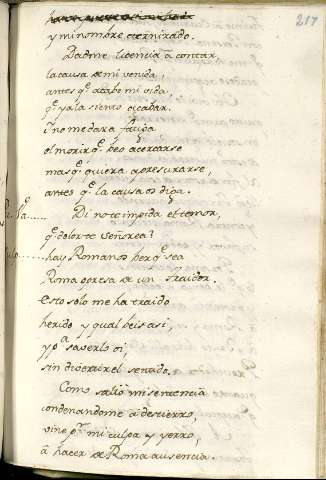 217
y mi nombre eternizado.
Dadme licencia a contar,
la causa de mi venida,
antes q̃ acabe mi vida,
q̃ ya la siento acabar.
i no me dara fatiga
el morir q̃ beo acercarse
mas q̃ quiera apresurarse,
antes q̃ la causa os diga.
Di no te impida el temor,
q̃ dolor te señorea?
hay Romanos ber q̃ sea
Roma opresa de un traidor.
esto solo me ha traido
herido y qual beis asi,
y pa saverlo oi,
sin
el sentido.
Como salio mi sentencia
condenandome a destierro,
vine pr mi culpa y yerro,
a hacer de Roma ausencia.